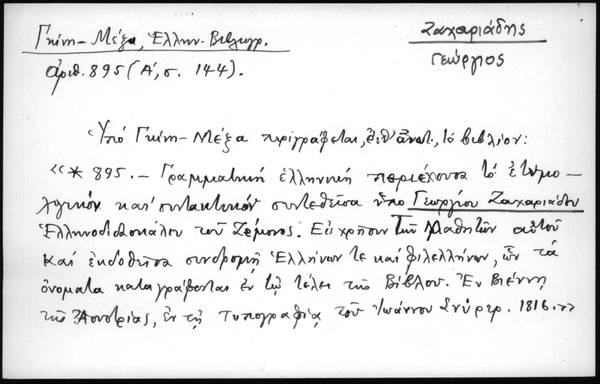 Γκίνη-Μέξα, Ἑλλην. Βιβλιογρ.
ἀριθ. 895 (Α', σ. 144).
Ζαχαριάδης
Γεώργιος
Ὑπό Γκίνη-Μέξα περιγράφεται, τό βιβλίον:
«* 895.- Γραμματική ἑλληνική περιέχουσα τό ἐτυμο-
λογικόν καί συντακτικόν συντεθεῖσα ὑπο Γεωργίου Ζαχαριάδου
Ἑλληνοδιδασκάλου τοῦ Ζέμονος. Εἰς χρῆσιν τῶν Μαθητῶν αὐτοῦ
καί ἐκδοθεῖσα συνδρομῇ Ἑλλήνων τε καί φιλελλήνων, ὧν τά
ὀνόματα καταγράφονται ἐν τῷ τέλει τῆς Βίβλου. Ἐν Βιέννῃ
τῆς Ἀουστρίας, ἐν τῇ τυπογραφίᾳ τοῦ Ἰωάννου Σνύρερ. 1816.»